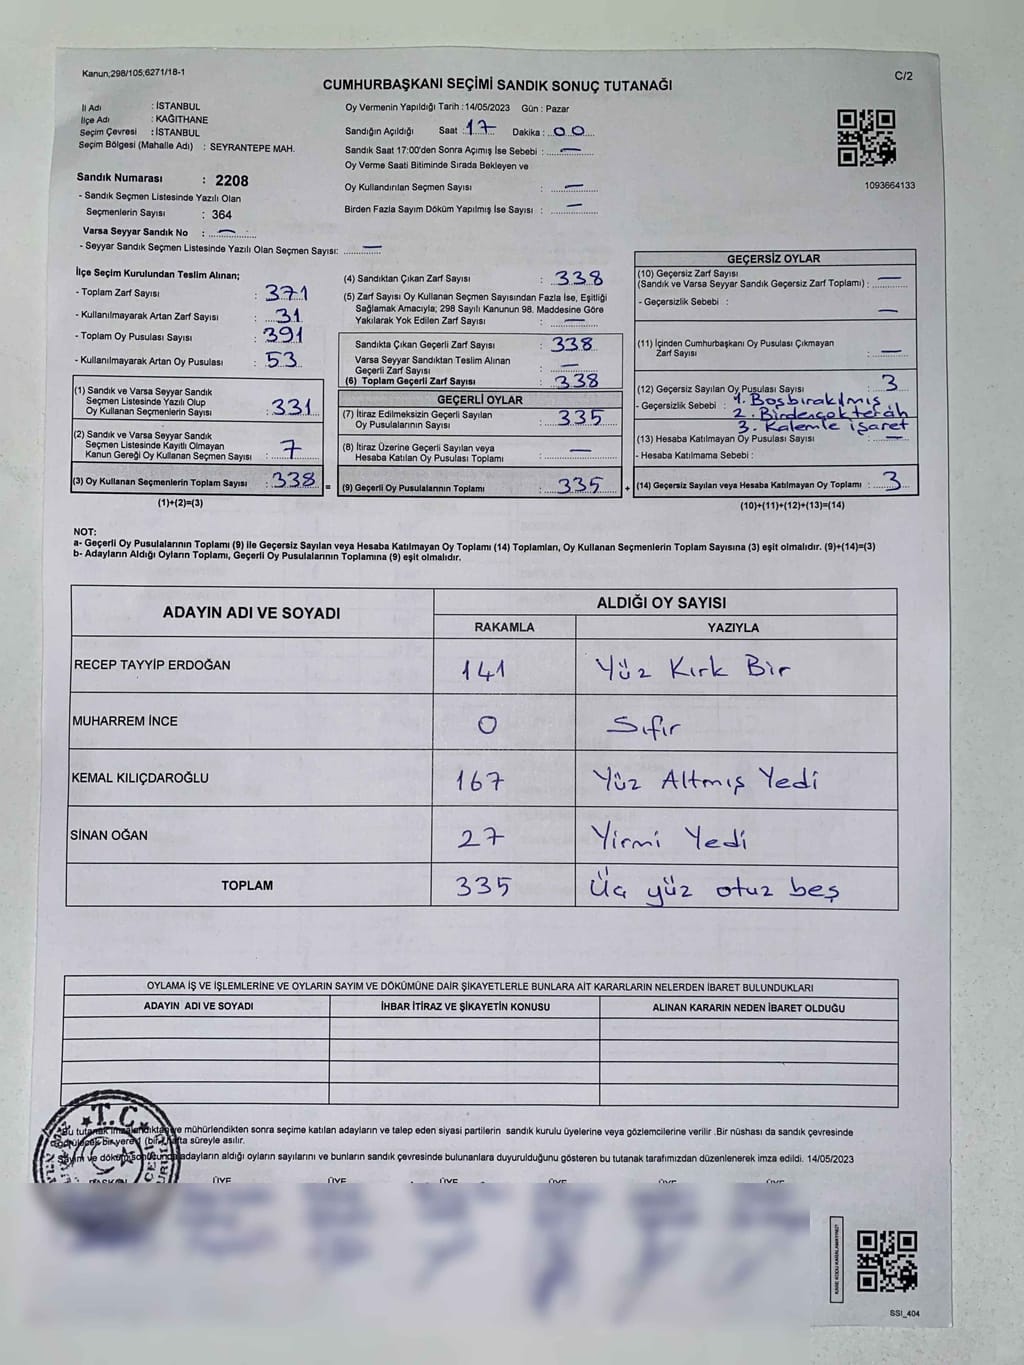 Kanun;298/105;6271/18-1
C/2
CUMHURBAŞKANI SEÇİMİ SANDIK SONUÇ TUTANAĞI
İl Adı : İSTANBUL
İlçe Adı : KAĞITHANE
Seçim Çevresi : İSTANBUL
Seçim Bölgesi (Mahalle Adı) : SEYRANTEPE MAH.
Sandık Numarası : 2208
- Sandık Seçmen Listesinde Yazılı Olan
Seçmenlerin Sayısı : 364
Varsa Seyyar Sandık No : —
- Seyyar Sandık Seçmen Listesinde Yazılı Olan Seçmen Sayısı: —
Oy Vermenin Yapıldığı Tarih :14/05/2023 Gün : Pazar
Sandığın Açıldığı Saat :17 Dakika : 00
Sandık Saat 17:00'den Sonra Açımış İse Sebebi : —
Oy Verme Saati Bitiminde Sırada Bekleyen ve
Oy Kullandırılan Seçmen Sayısı : —
Birden Fazla Sayım Döküm Yapılmış İse Sayısı : —
1093664133
İlçe Seçim Kurulundan Teslim Alınan;
- Toplam Zarf Sayısı : 371
- Kullanılmayarak Artan Zarf Sayısı : 31
- Toplam Oy Pusulası Sayısı : 391
- Kullanılmayarak Artan Oy Pusulası : 53
(1) Sandık ve Varsa Seyyar Sandık
Seçmen Listesinde Yazılı Olup
Oy Kullanan Seçmenlerin Sayısı : 331
(2) Sandık ve Varsa Seyyar Sandık
Seçmen Listesinde Kayıtlı Olmayan
Kanun Gereği Oy Kullanan Seçmen Sayısı : 7
(3) Oy Kullanan Seçmenlerin Toplam Sayısı : 338 =
(1)+(2)=(3)
(4) Sandıktan Çıkan Zarf Sayısı : 338
(5) Zarf Sayısı Oy Kullanan Seçmen Sayısından Fazla İse, Eşitliği
Sağlamak Amacıyla; 298 Sayılı Kanunun 98. Maddesine Göre
Yakılarak Yok Edilen Zarf Sayısı : —
Sandıkta Çıkan Geçerli Zarf Sayısı : 338
Varsa Seyyar Sandıktan Teslim Alınan
Geçerli Zarf Sayısı : —
(6) Toplam Geçerli Zarf Sayısı : 338
GEÇERLİ OYLAR
(7) İtiraz Edilmeksizin Geçerli Sayılan
Oy Pusulalarının Sayısı : 335
(8) İtiraz Üzerine Geçerli Sayılan veya
Hesaba Katılan Oy Pusulası Toplamı : —
(9) Geçerli Oy Pusulalarının Toplamı : 335 +
GEÇERSİZ OYLAR
(10) Geçersiz Zarf Sayısı
(Sandık ve Varsa Seyyar Sandık Geçersiz Zarf Toplamı) : —
- Geçersizlik Sebebi : —
(11) İçinden Cumhurbaşkanı Oy Pusulası Çıkmayan
Zarf Sayısı : —
(12) Geçersiz Sayılan Oy Pusulası Sayısı : 3
- Geçersizlik Sebebi : 1. Boş bırakılmış
2. Birden çok tercih
3. Kalemle işaret
(13) Hesaba Katılmayan Oy Pusulası Sayısı : —
- Hesaba Katılmama Sebebi :
(14) Geçersiz Sayılan veya Hesaba Katılmayan Oy Toplamı : 3
(10)+(11)+(12)+(13)=(14)
NOT:
a- Geçerli Oy Pusulalarının Toplamı (9) ile Geçersiz Sayılan veya Hesaba Katılmayan Oy Toplamı (14) Toplamları, Oy Kullanan Seçmenlerin Toplam Sayısına (3) eşit olmalıdır. (9)+(14)=(3)
b- Adayların Aldığı Oyların Toplamı, Geçerli Oy Pusulalarının Toplamına (9) eşit olmalıdır.
ADAYIN ADI VE SOYADI ALDIĞI OY SAYISI
RAKAMLA YAZIYLA
RECEP TAYYİP ERDOĞAN 141 Yüz Kırk Bir
MUHARREM İNCE 0 Sıfır
KEMAL KILIÇDAROĞLU 167 Yüz Altmış Yedi
SİNAN OĞAN 27 Yirmi Yedi
TOPLAM 335 Üç yüz otuz beş
OYLAMA İŞ VE İŞLEMLERİNE VE OYLARIN SAYIM VE DÖKÜMÜNE DAİR ŞİKAYETLERLE BUNLARA AİT KARARLARIN NELERDEN İBARET BULUNDUKLARI
ADAYIN ADI VE SOYADI İHBAR İTİRAZ VE ŞİKAYETİN KONUSU ALINAN KARARIN NEDEN İBARET OLDUĞU
T.C
Bu tutanak imzalandıktan ve mühürlendikten sonra seçime katılan adayların ve talep eden siyasi partilerin sandık kurulu üyelerine veya gözlemcilerine verilir .Bir nüshası da sandık çevresinde
bir yere 1 (bir) hafta süreyle asılır.
Sayım ve döküm sonucunda adayların aldığı oyların sayılarını ve bunların sandık çevresinde bulunanlara duyurulduğunu gösteren bu tutanak tarafımızdan düzenlenerek imza edildi. 14/05/2023
BAŞKAN ÜYE ÜYE ÜYE ÜYE ÜYE ÜYE
SSI_404